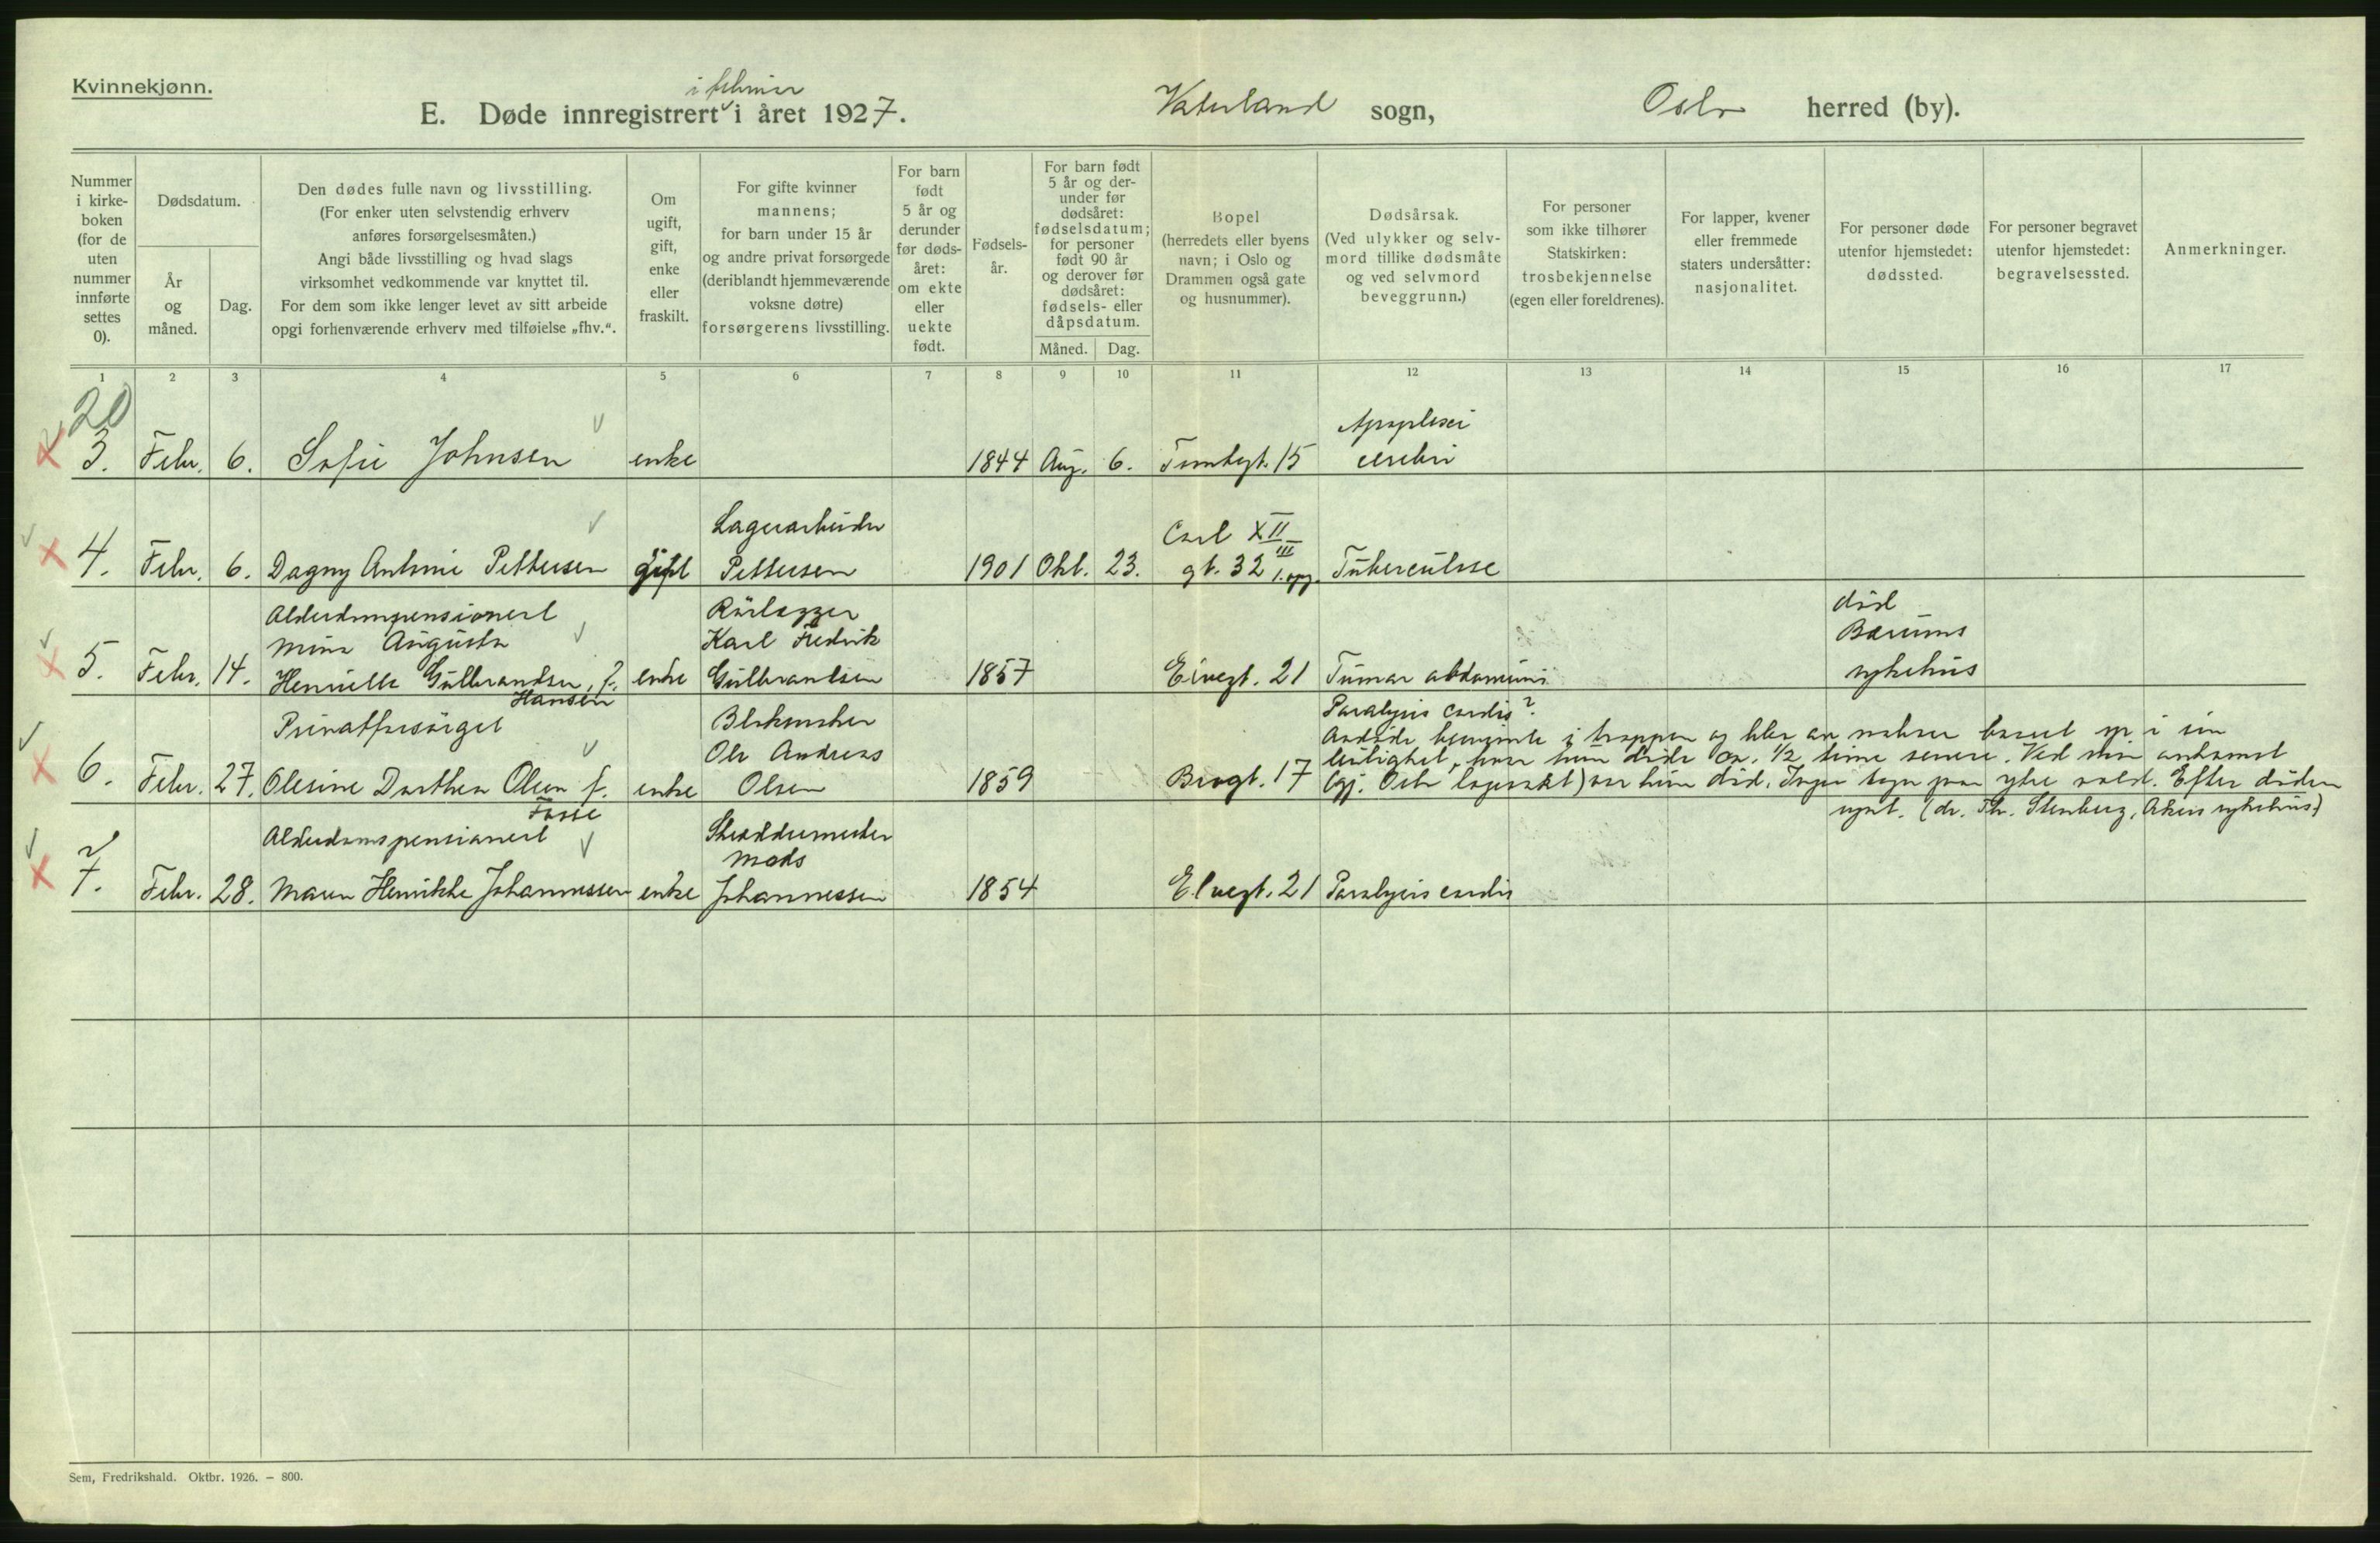 Kvinnekjønn.
i februar
E. Døde innregistrert i året 1927. Vaterland sogn, Oslo herred (by).
Nummer i kirkeboken (for de uten nummer innførte settes 0).
Dødsdatum.
År og måned.
Dag.
Den dødes fulle navn og livsstilling.
(For enker uten selvstendig erhverv
anføres forsørgelsesmåten.)
Angi både livsstilling og hvad slags
virksomhet vedkommende var knyttet til.
For dem som ikke lenger levet av sitt arbeide
opgi forhenværende erhverv med tilføielse „fhv.“.
Om ugift, gift, enke eller fraskilt.
For gifte kvinner
mannens;
for barn under 15 år
og andre privat forsørgede
(deriblandt hjemmeværende
voksne døtre)
forsørgerens livsstilling.
For barn født 5 år og derunder før dødsåret: om ekte eller uekte født.
Fødselsår.
For barn født 5 år og derunder før dødsåret: fødselsdatum; for personer født 90 år og derover før dødsåret: fødsels- eller dåpsdatum.
Måned. Dag.
Bopel
(herredets eller byens
navn; i Oslo og
Drammen også gate
og husnummer).
Dødsårsak.
(Ved ulykker og selvmord tillike dødsmåte
og ved selvmord
beveggrunn.)
For personer
som ikke tilhører
Statskirken:
trosbekjennelse
(egen eller foreldrenes).
For lapper, kvener
eller fremmede
staters undersåtter:
nasjonalitet.
For personer døde
utenfor hjemstedet:
dødssted.
For personer begravet
utenfor hjemstedet:
begravelsessted.
Anmerkninger.
1 2 3 4 5 6 7 8 9 10 11 12 13 14 15 16 17
20
Apoplexi
3. Febr. 6. Sofie Johnsen enke 1844 Aug. 6. Tomtegt. 15 cerebri
Lagerarbeider Carl XII
4. Febr. 6. Dagny Antonie Pettersen gift Pettersen 1901 Okt. 23. gt. 32 III 1. opg. Tuberculose
Alderdomspensionert Rørlegger død
Mina Augusta Karl Fredrik Bærums
5. Febr. 14. Henriette Gulbrandsen, f. enke Gulbrandsen 1857 Elvegt. 21 Tumor abdominis sykehus
Hansen
Privatforsørget Blokmaker Paralysis cordis?
Ole Andreas
6. Febr. 27. Olesine Dorthea Olsen f. enke Olsen 1859 Brogt. 17
Fosse
Andude besvimte i trappen og blev av naboer baaret op i sin
leilighet, hvor hun døde ca. 1/2 time senere. Ved min ankomst
(gj. Oslo legevakt) var hun død. Ingen tegn paa ytre vold. Efter døden
synt. (dr. Th. Stenberg, Akers sykehus)
Alderdomspensionert Skræddermester
Mads
7. Febr. 28. Maren Henrikke Johannessen enke Johannessen 1854 Elvegt. 21 Paralysis cordis
Sem, Fredrikshald. Oktbr. 1926. – 800.